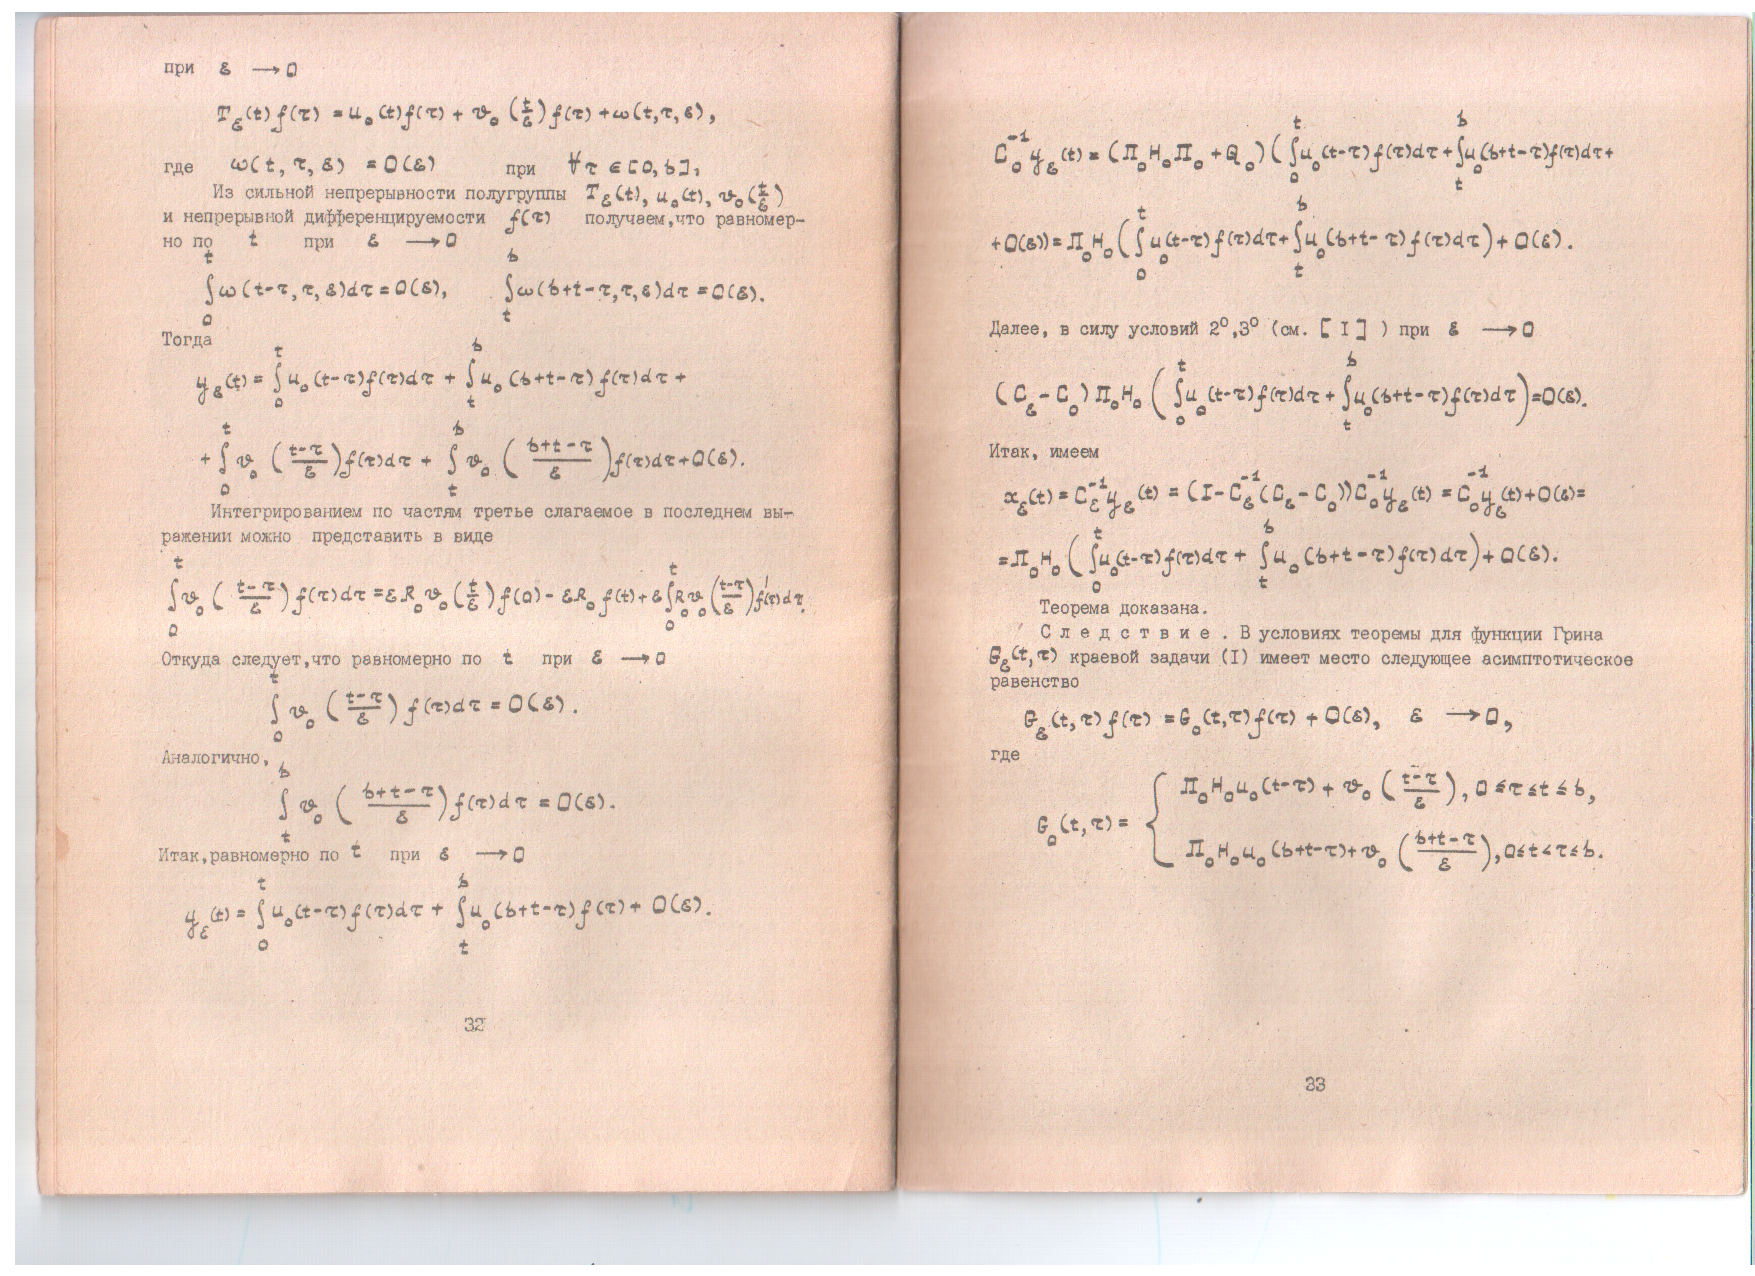 при ε → 0
T_ε(t)f(τ) = u₀(t)f(τ) + v₀(t/ε)f(τ) + ω(t,τ,ε),
где ω(t,τ,ε) = O(ε) при ∀τ ∈ [0,b],
Из сильной непрерывности полугруппы T_ε(t), u₀(t), v₀(t/ε)
и непрерывной дифференцируемости f(τ) получаем,что равномер-
но по t при ε → 0
∫₀^t ω(t-τ,τ,ε)dτ = O(ε), ∫_t^b ω(b+t-τ,τ,ε)dτ = O(ε).
Тогда
y_ε(t) = ∫₀^t u₀(t-τ)f(τ)dτ + ∫_t^b u₀(b+t-τ)f(τ)dτ +
+ ∫₀^t v₀((t-τ)/ε)f(τ)dτ + ∫_t^b v₀((b+t-τ)/ε)f(τ)dτ + O(ε).
Интегрированием по частям третье слагаемое в последнем вы-
ражении можно представить в виде
∫₀^t v₀((t-τ)/ε)f(τ)dτ = εR₀v₀(t/ε)f(0) - εR₀f(t) + ε∫₀^t R₀v₀((t-τ)/ε)f'(τ)dτ.
Откуда следует,что равномерно по t при ε → 0
∫₀^t v₀((t-τ)/ε)f(τ)dτ = O(ε).
Аналогично,
∫_t^b v₀((b+t-τ)/ε)f(τ)dτ = O(ε).
Итак,равномерно по t при ε → 0
y_ε(t) = ∫₀^t u₀(t-τ)f(τ)dτ + ∫_t^b u₀(b+t-τ)f(τ) + O(ε).
32
C₀⁻¹y_ε(t) = (П₀H₀П₀ + Q₀)(∫₀^t u₀(t-τ)f(τ)dτ + ∫_t^b u₀(b+t-τ)f(τ)dτ +
+ O(ε)) = П₀H₀(∫₀^t u₀(t-τ)f(τ)dτ + ∫_t^b u₀(b+t-τ)f(τ)dτ) + O(ε).
Далее, в силу условий 2⁰,3⁰ (см. [I] ) при ε → 0
(C_ε - C₀)П₀H₀(∫₀^t u₀(t-τ)f(τ)dτ + ∫_t^b u₀(b+t-τ)f(τ)dτ) = O(ε).
Итак, имеем
x_ε(t) = C_ε⁻¹y_ε(t) = (I - C_ε⁻¹(C_ε - C₀))C₀⁻¹y_ε(t) = C₀⁻¹y_ε(t) + O(ε) =
= П₀H₀(∫₀^t u₀(t-τ)f(τ)dτ + ∫_t^b u₀(b+t-τ)f(τ)dτ) + O(ε).
Теорема доказана.
С л е д с т в и е . В условиях теоремы для функции Грина
G_ε(t,τ) краевой задачи (I) имеет место следующее асимптотическое
равенство
G_ε(t,τ)f(τ) = G₀(t,τ)f(τ) + O(ε), ε → 0,
где
G₀(t,τ) = { П₀H₀u₀(t-τ) + v₀((t-τ)/ε), 0 ≤ τ ≤ t ≤ b,
П₀H₀u₀(b+t-τ) + v₀((b+t-τ)/ε), 0 ≤ t < τ ≤ b.
33